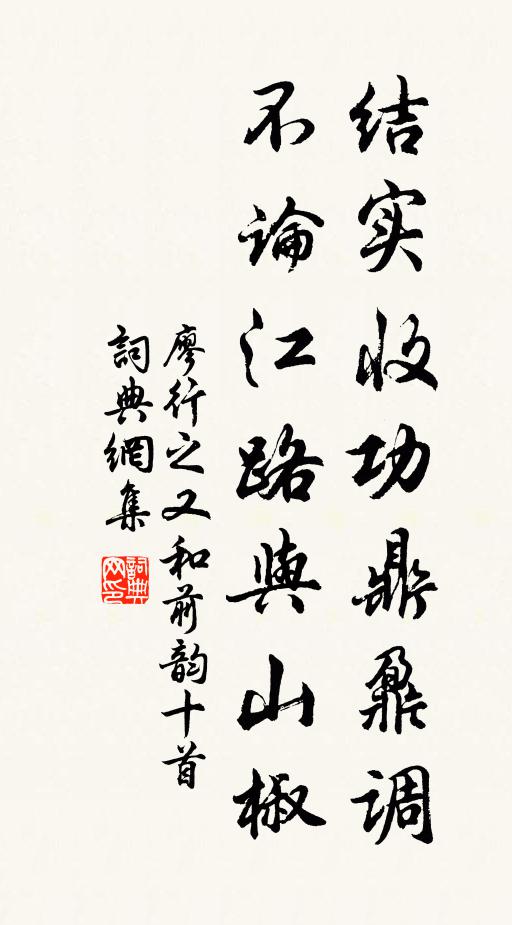 结实收功鼎鼐调
不論江路與山椒
廖行之又和前韵十首
詞典網集
詞典网印